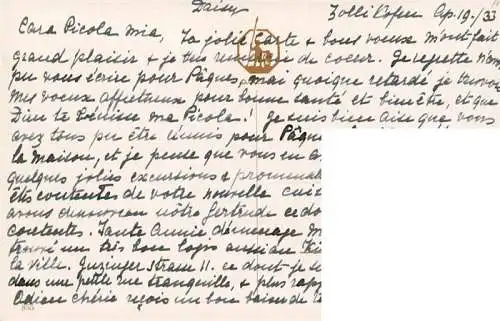 Daisy Zollikofen Ap. 19-/33
Cara Picola mia, Ta jolie carte & bons voeux m'ont fait
grand plaisir & je t'en remercie de coeur. Je regrette n'
pu vous écrire pour Pâques, mai quoique retardé je t'envoi
mes voeux affectueux pour bonne santé et bien être, et que
Dieu te bénisse ma Picola! je suis bien aise que vous
avez tous pu être réunis pour Pâqu
la maison, et je pense que vous en a
quelques jolies excursions & promena
êtes contentes de votre nouvelle cuisi
avons de nôtre Gertrude ce do
contentes. Tante Annie démenage
trouvé un très bon logis aussi au
la ville. strasse 11. ce dont je s
dans une petite rue tranquille, & plus rapp
Adieu chérie reçois un bon baiser de t